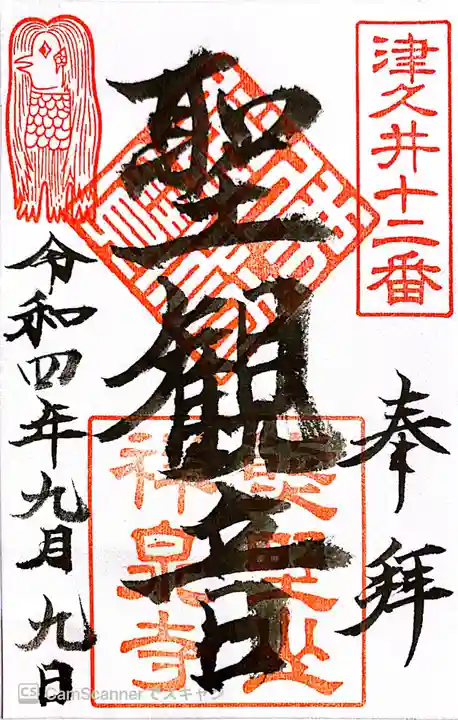 津久井十二番
奉拝
聖観音
令和四年九月九日
神泉寺
CS CamScannerでスキャン